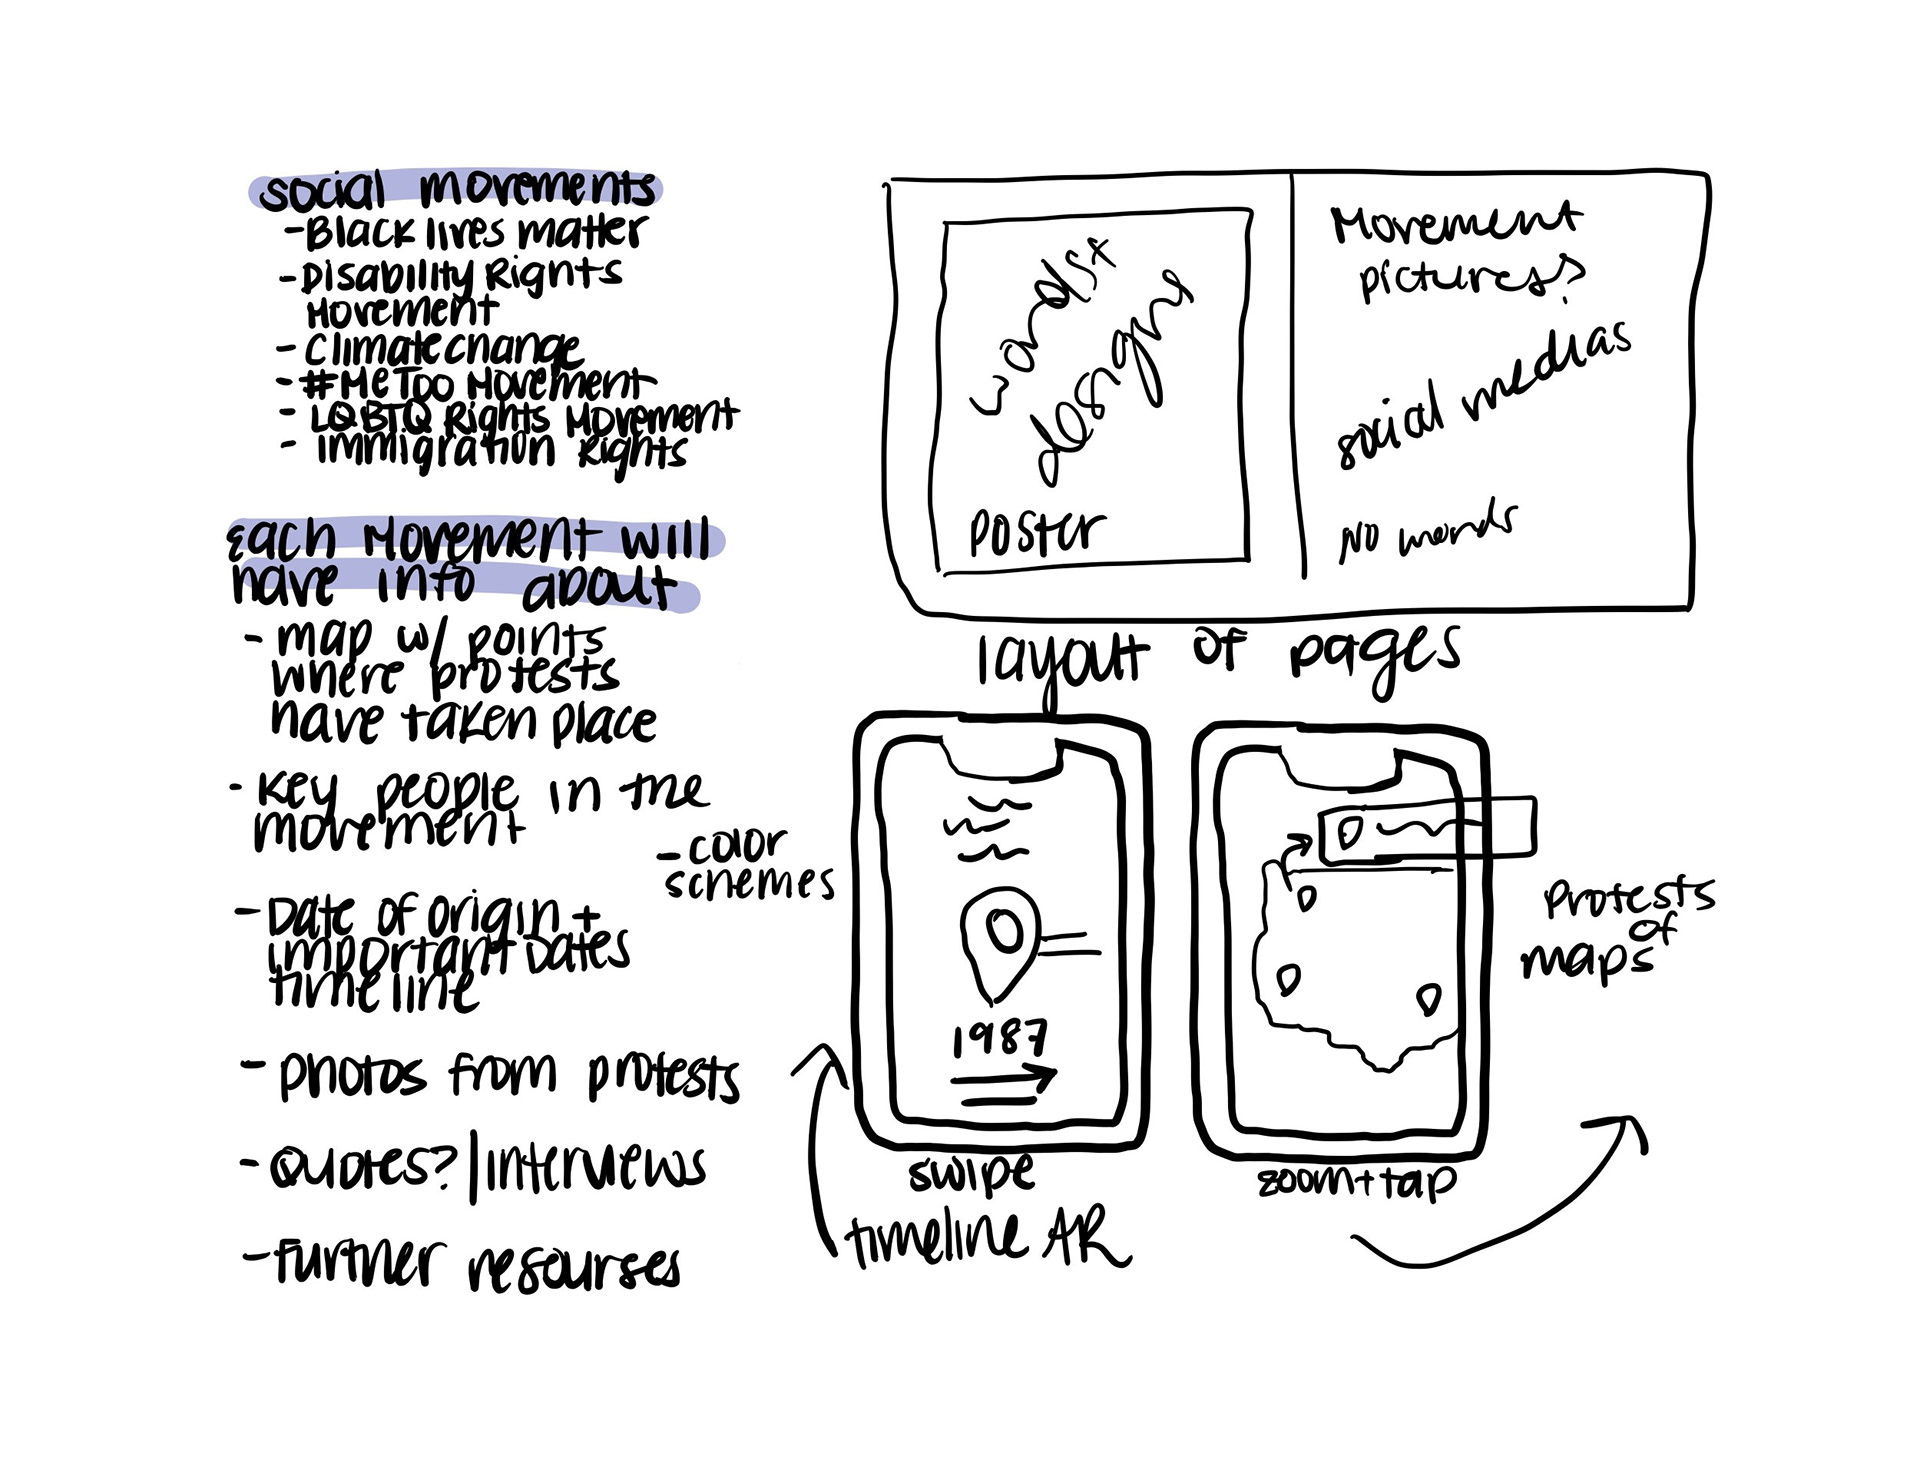 social movements
- Black lives matter
- Disability Rights
Movement
- climate change
- #MeToo Movement
- LGBTQ Rights Movement
- Immigration Rights
Each Movement will
have info about
- map w/ points
where protests
have taken place
- Key people in the
movement
- color
schemes
- Date of origin +
important Dates
timeline
- photos from protests
- Quotes? | interviews
- further resourses
designs
POSTER
Movement
pictures?
social medias
NO words
layout of pages
1987
swipe
timeline AR
zoom + tap
Protests
of
maps